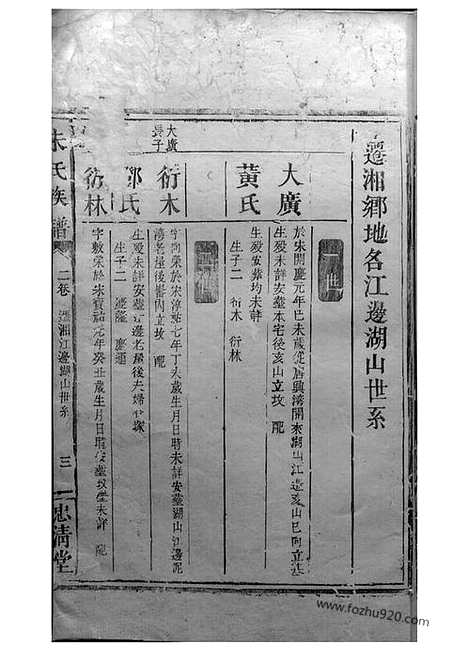 遷湘鄉地名江邊湖山世系
一世
大廣
於宋開慶元年已未歲從居興灣開來湖山江邊亥山巳向立基
生歿未詳安葬本宅後亥山立坟 配
黃氏
生歿安葬均未詳
生子二 衍木 衍林
二世
大廣長子
衍木
字向榮於宋淳祐七年丁未歲生月日時未詳安葬湖山江邊
老屋後山內立坟 配
鄧氏
生歿未詳安葬江邊老屋後夫婦
生子二
衍林
字敷榮於宋寶祐元年癸丑歲生月日時安葬坟塋未詳 配
朱氏族譜
二卷 遷湘江邊湖山世系
三
忠清堂
www.fozhu920.com